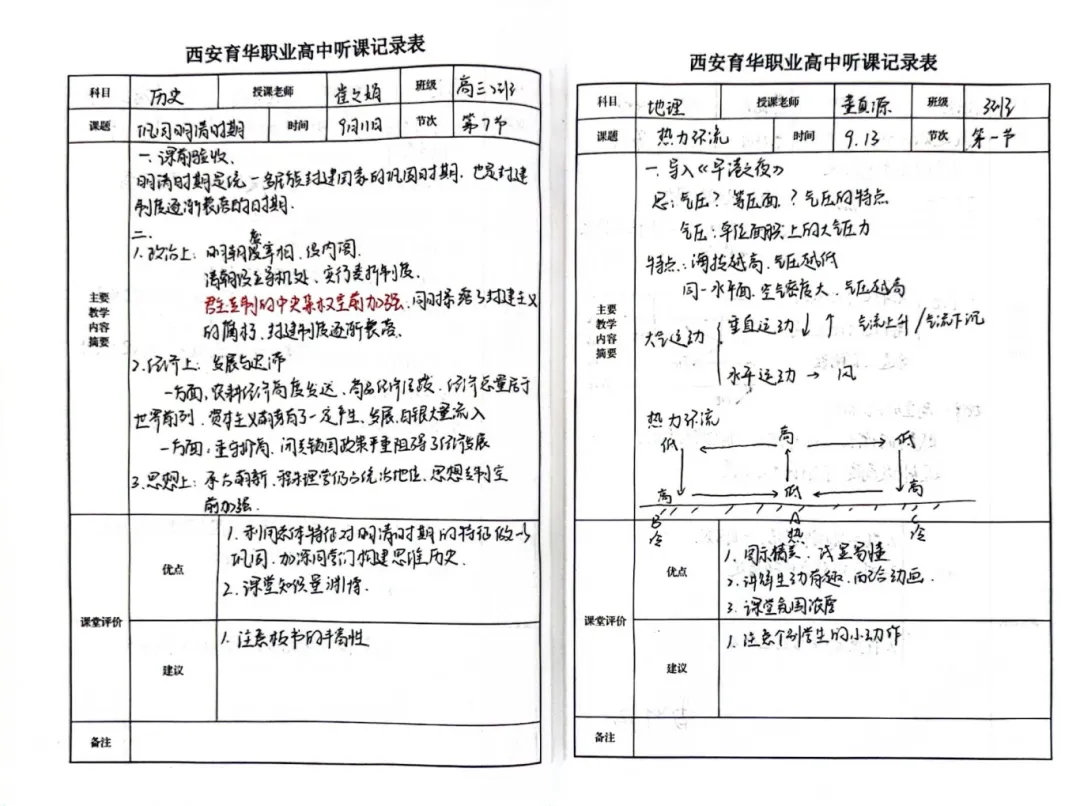 西安育华职业高中听课记录表
科目 历史 授课老师 崔文娟 班级 高三2班
课题 巩固明清时期 时间 9月11日 节次 第7节
主要教学内容摘要
一、课前验收.
明清时期是统一多民族封建国家的巩固时期. 也是封建
制度逐渐衰落的时期.
二.
1.政治上: 明朝废宰相、设内阁.
清朝设立军机处、实行奏折制度.
君主专制的中央集权空前加强. 同时暴露了封建主义
的腐朽. 封建制度逐渐衰落.
2.经济上: 发展与迟滞
一方面, 农耕经济高度发达、商品经济活跃. 经济总量居于
世界前列. 资本主义萌芽有了一定产生、发展. 白银大量流入
一方面, 重农抑商、闭关锁国政策严重阻碍了经济发展
3.思想上: 承古萌新、程朱理学仍占统治地位、思想专制空
前加强.
课堂评价
优点
1. 利用总体特征对明清时期的特征做以
巩固. 加深同学们构建思维历史.
2. 课堂知识量渊博.
建议
1. 注意板书的平高性
备注
西安育华职业高中听课记录表
科目 地理 授课老师 董真源 班级 3班
课题 热力环流 时间 9.13 节次 第一节
主要教学内容摘要
一. 导入《军港之夜》
思: 气压? 等压面? 气压的特点
气压: 单位面积上的大气压力
特点: 海拔越高、气压越低
同一水平面, 空气密度大、气压越高
大气运动 垂直运动 ↓ ↑ 气流上升/气流下沉
水平运动 → 风
热力环流
低 ← 高 → 低
高 → 低 ← 高
B A C
冷 热 冷
课堂评价
优点
1. 图示精美、浅显易懂
2. 讲解生动有趣、配合动画.
3. 课堂氛围浓厚
建议
1. 注意个别学生的小动作
备注